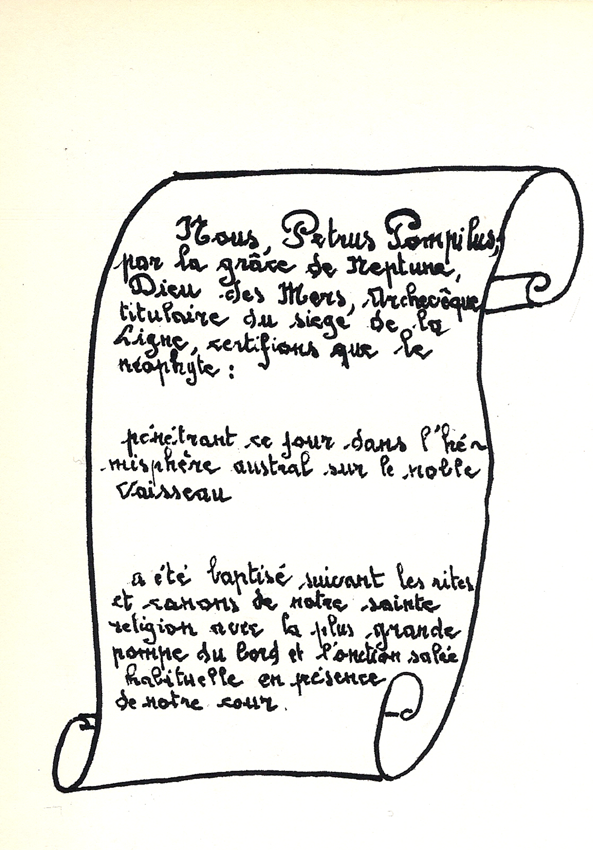 Nous, Petrus Pompilus,
par la grâce de Neptune,
Dieu des Mers, Archevêque
titulaire du siège de la
Ligne, certifions que le
néophyte :
pénétrant ce jour dans l'hé-
misphère austral sur le noble
Vaisseau
a été baptisé suivant les rites
et canons de notre sainte
religion avec la plus grande
pompe du bord et l'onction salée
habituelle en présence
de notre cour.